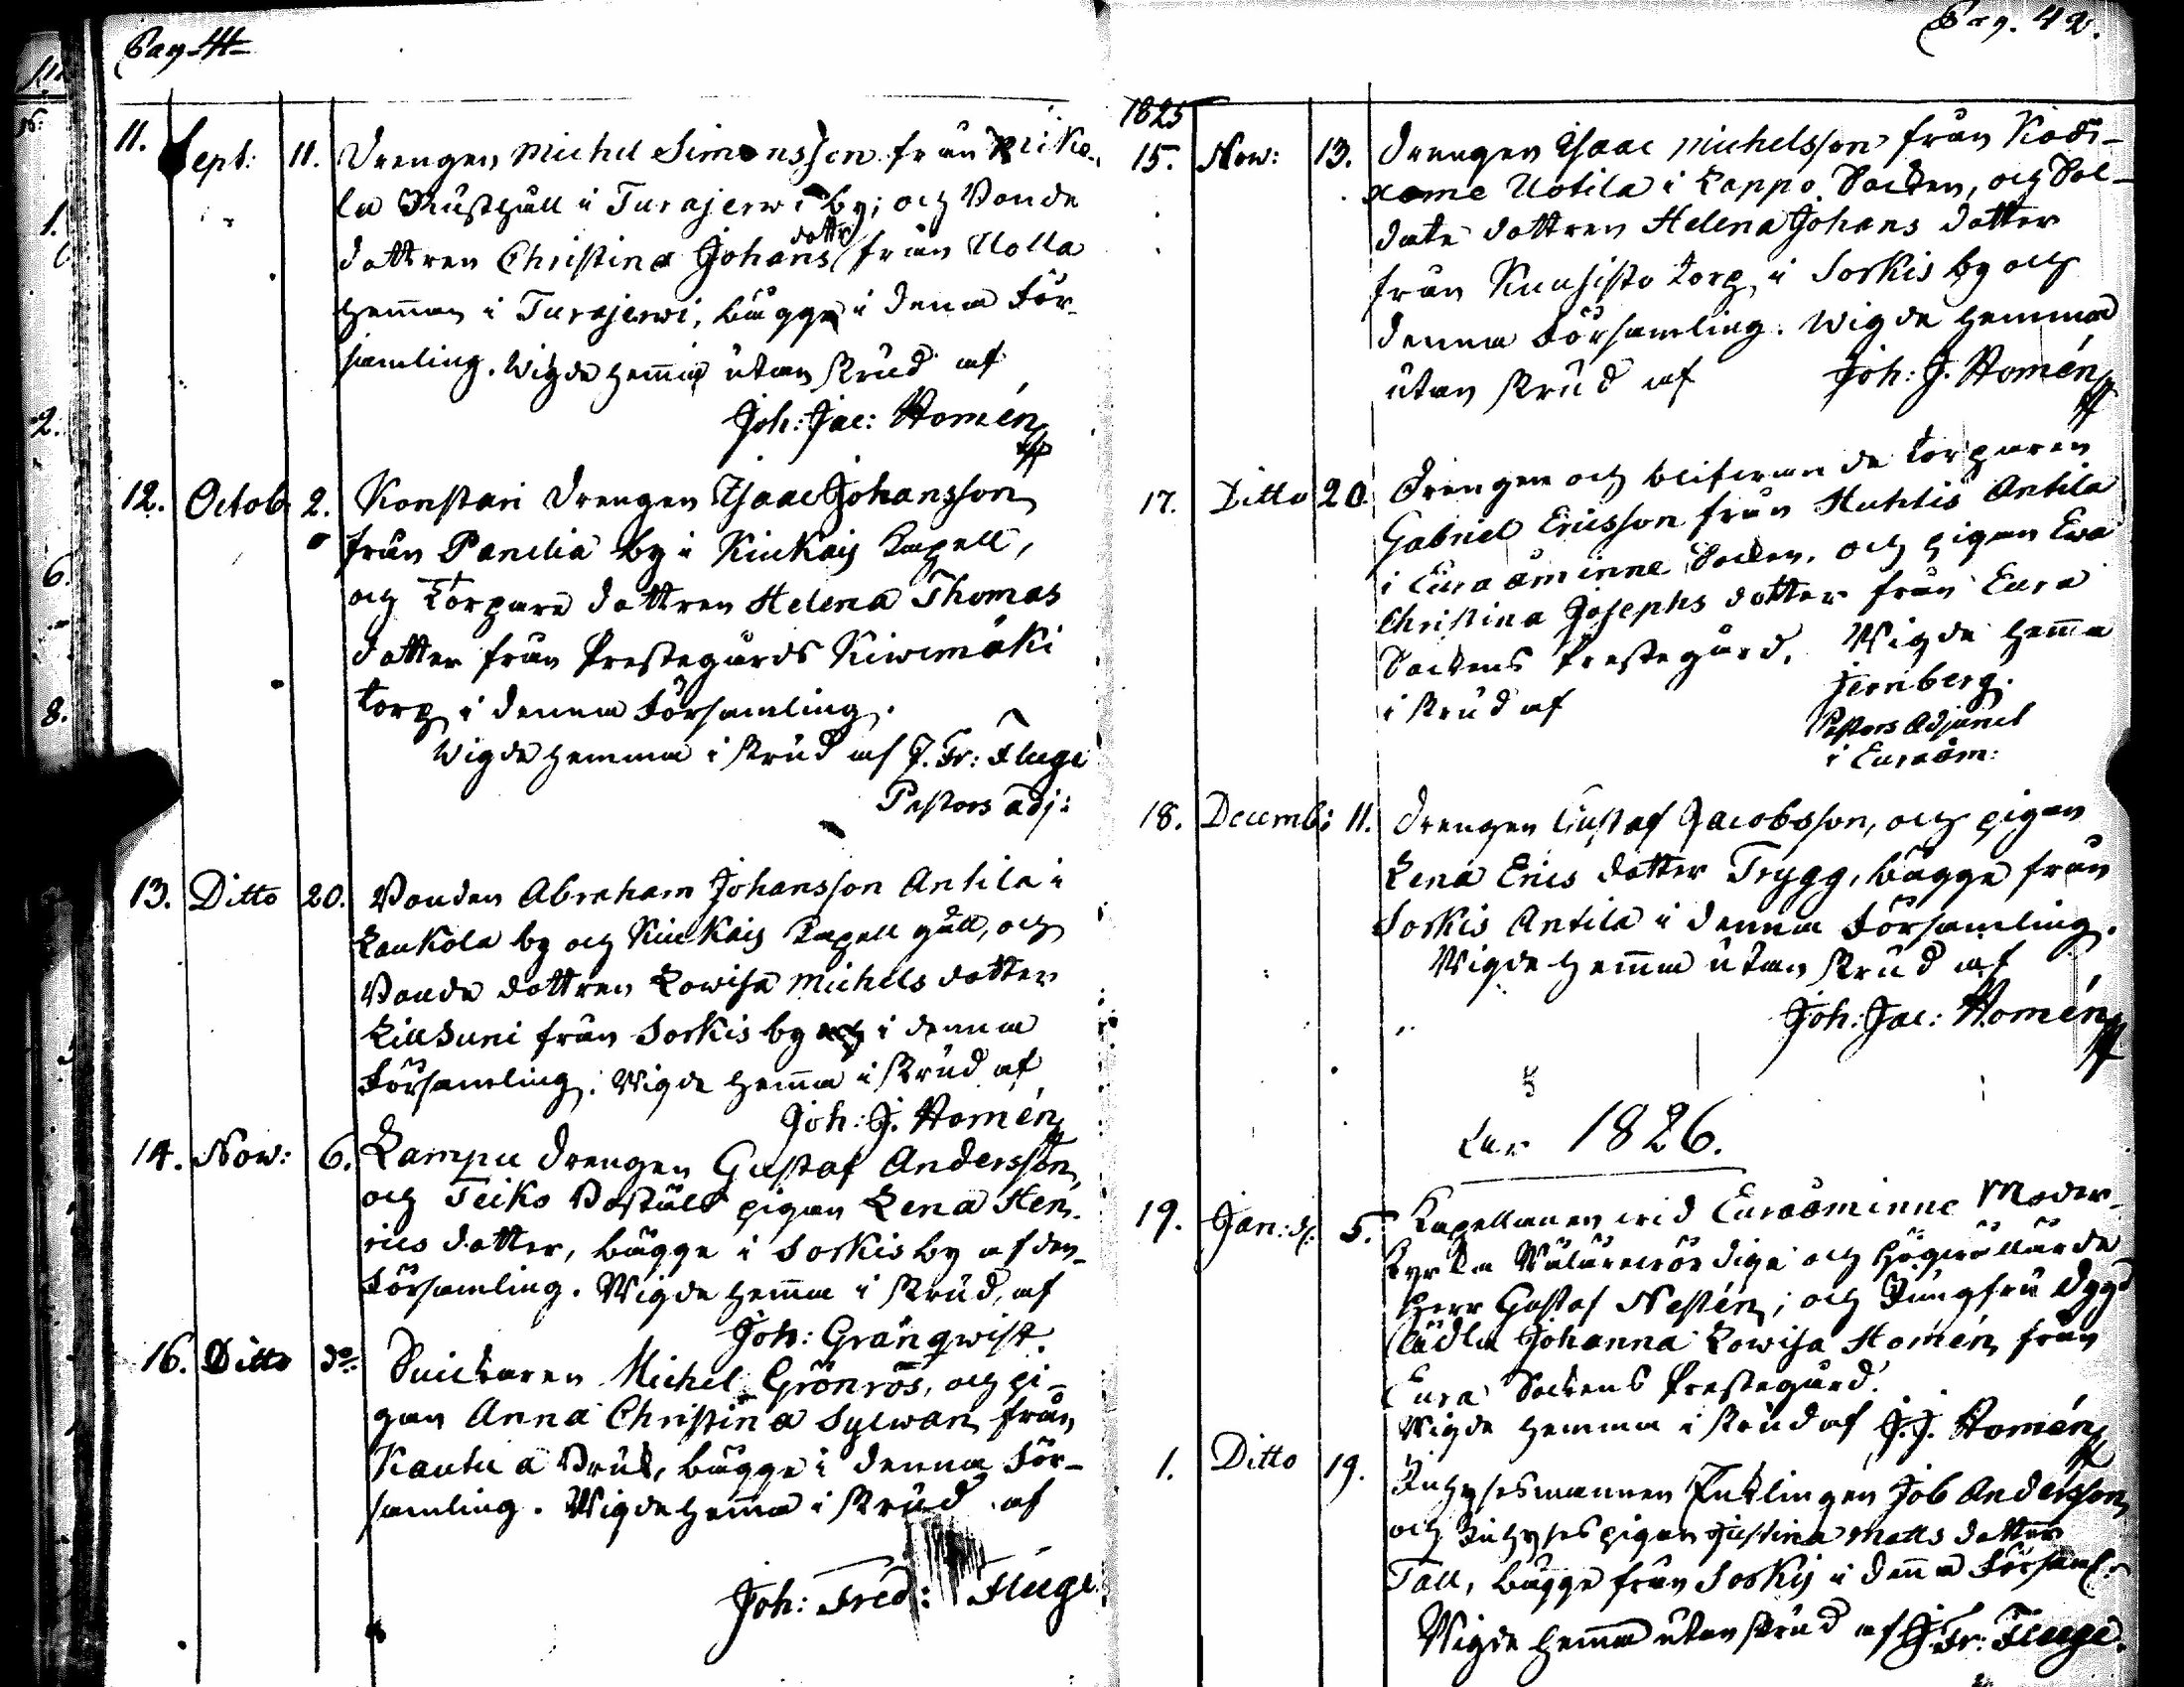 Pag. 41
11. Sept: 11. Drengen Michel Simonsson från Miko-
la Rusthåll i Turajerwi by; och Bonde
dottren Christina Johans dottr från Uolla
hemman i Turajerwi, bägge i denna För-
samling. Wigde hemma utan skrud af
Joh: Jac: Homén
12. Octob 2. Konstari Drengen Isaac Johansson
från Panelia by i Kiukais Capell,
och Torpare dottren Helena Thomas
dotter från Prestegårds Kiwimäki
torp i denna Församling.
Wigde hemma i skrud af J. Fr: Fluge
Pastors adj:
13. Ditto 20. Bonden Abraham Johansson Antila i
Laukola by och Kiukais Capell gäll, och
Bonde dottren Lowisa Michels dotter
Lill Suni från Sorkis by i denna
Församling. Wigde hemma i skrud af
Joh: J. Homén
14. Now: 6. Lampu Drengen Gustaf Andersson,
och Teiko Boställs pigan Lena Hen-
rics dotter, bägge i Sorkis by af den-
Församling. Wigde hemma i skrud, af
Joh: Granqwist.
16. Ditto do. Snickaren Michel Grönros, och pi-
gan Anna Christina Sylwan från
Kautua Bruk, bägge i denna För-
samling. Wigde hemma i skrud af
Joh: Fred: Fluge
Pag. 42.
1825
15. Now: 13. Drengen Isaac Michelsson från Kodi-
xome Uotila i Lappo Socken, och Sol-
date dottren Helena Johans dotter
från Kuusisto torp i Sorkis by och
denna Församling. Wigde hemma
utan skrud af Joh: J. Homén
17. Ditto 20. Drengen och blifwande torparen
Gabriel Ericsson från Huhtis Antila
i Euraåminne Socken, och pigan Ewa
Christina Josephs dotter från Eura
Sockens Prestegård. Wigde hemma
i skrud af Jernberg.
Pastors Adjunct
i Euraåm:
18. Decemb: 11. Drengen Gustaf Jacobsson, och pigan
Lena Erics dotter Trygg, bägge från
Sorkis Antila i denna Församling.
Wigde hemma utan skrud af
Joh: Jac: Homén
1826.
19. Jan: d. 5. Capellanen wid Euraåminne Moder-
kyrka Wälärewördige och Högwällärde
Herr Gustaf Nestén; och Jungfru Dygd
ädla Johanna Lowisa Homén, från
Eura Sockens Prestegård.
Wigde hemma i skrud af J. J. Homén
1. Ditto 19. Inhysesmannen Enklingen Job Andersson
och Inhyses pigan Justina Matts dotter
Tall, bägge från Sorkis i denna Församl:
Wigde hemma utan skrud af J. Fr: Fluge.